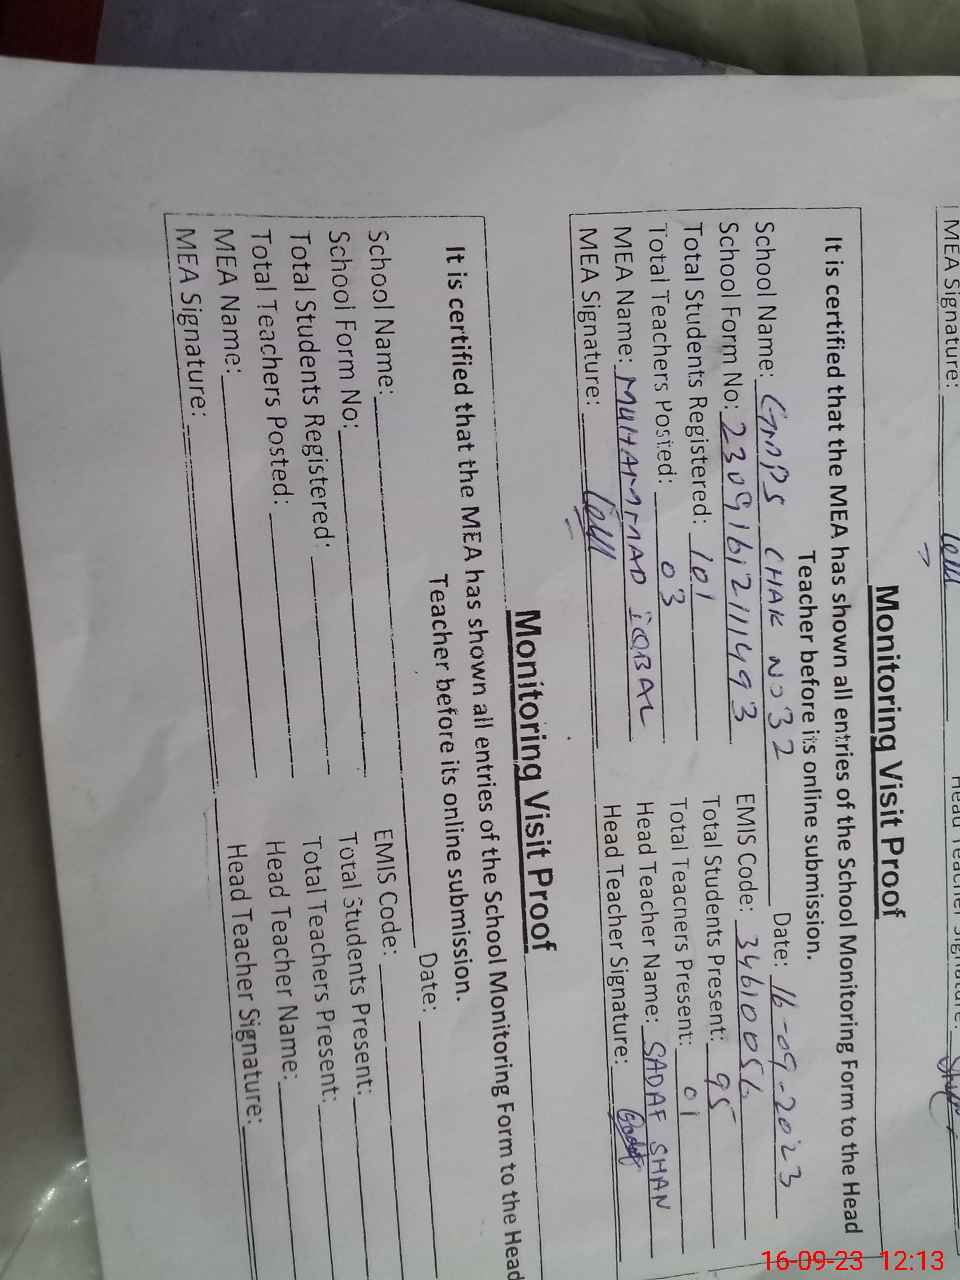 MEA Signature:
Head Teacher Signature:
Monitoring Visit Proof
It is certified that the MEA has shown all entries of the School Monitoring Form to the Head
Teacher before its online submission.
School Name: GMPS CHAK NO 32 Date: 16-09-2023
School Form No: 2309161211493 EMIS Code: 34610056
Total Students Registered: 101 Total Students Present: 95
Total Teachers Posted: 03 Total Teachers Present: 01
MEA Name: MUHAMMAD IQBAL Head Teacher Name: SADAF SHAN
MEA Signature: Head Teacher Signature:
Monitoring Visit Proof
It is certified that the MEA has shown all entries of the School Monitoring Form to the Head
Teacher before its online submission.
School Name: Date:
School Form No: EMIS Code:
Total Students Registered: Total Students Present:
Total Teachers Posted: Total Teachers Present:
MEA Name: Head Teacher Name:
MEA Signature: Head Teacher Signature:
16-09-23 12:13